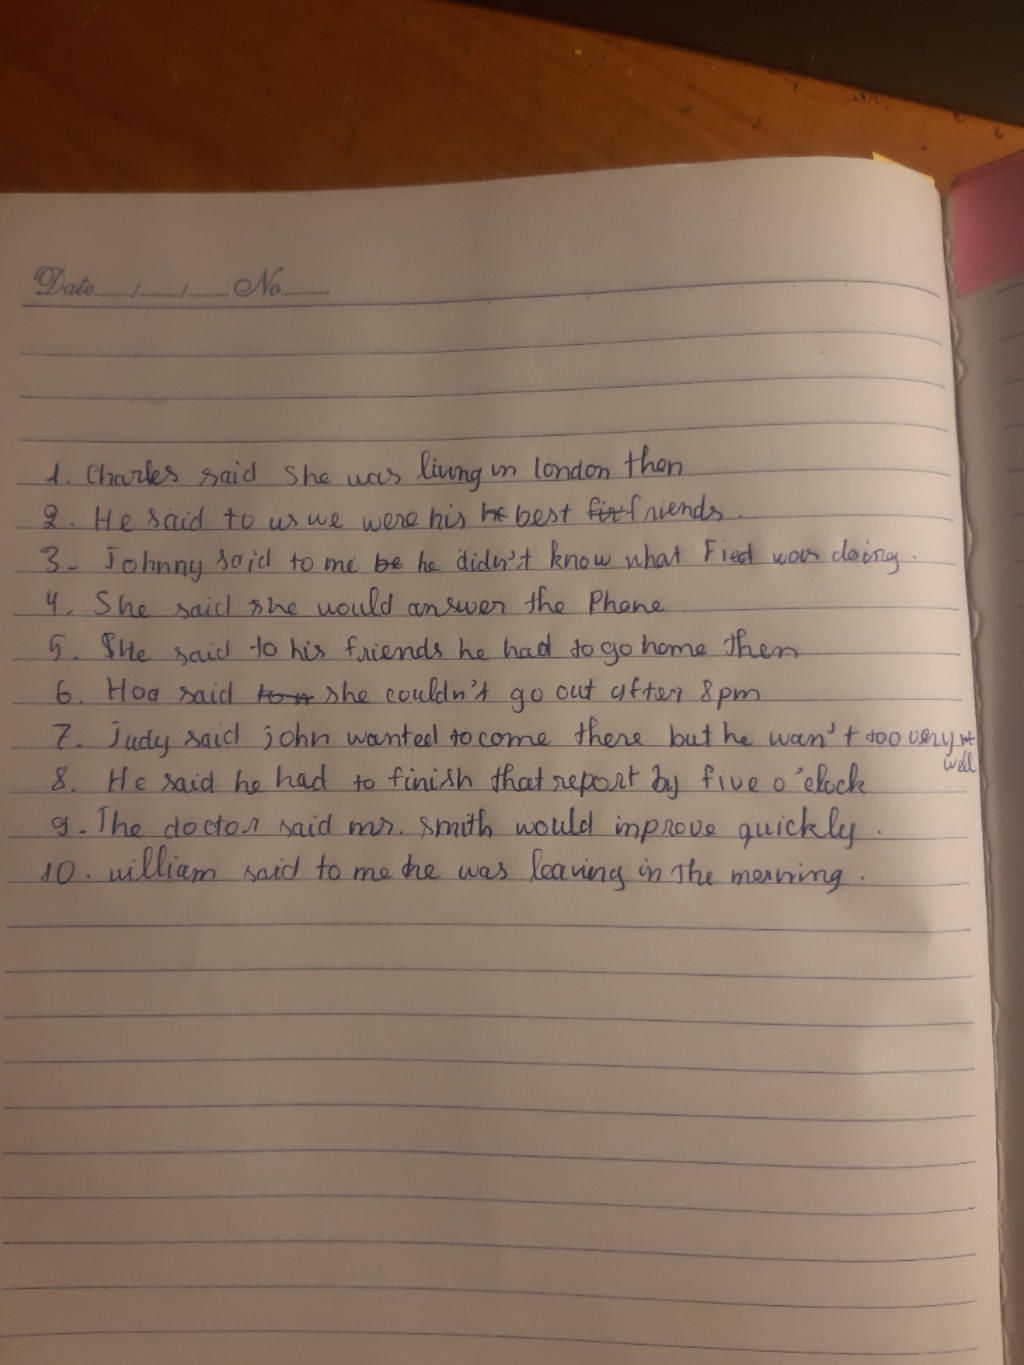 Date ....../......../........ No..........
1. Charles said She was living in london then
2. He said to us we were his best friends.
3- Johnny said to me he didn't know what Fied was doing.
4. She said she would answer the Phone
5. He said to his friends he had to go home then
6. Hoa said she couldn't go out after 8pm
7. Judy said john wanted to come there but he wan't too very
well
8. He said he had to finish that report by five o'clock
9-The doctor said mr. smith would inprove quickly.
10. william said to me he was leaving in the merning.